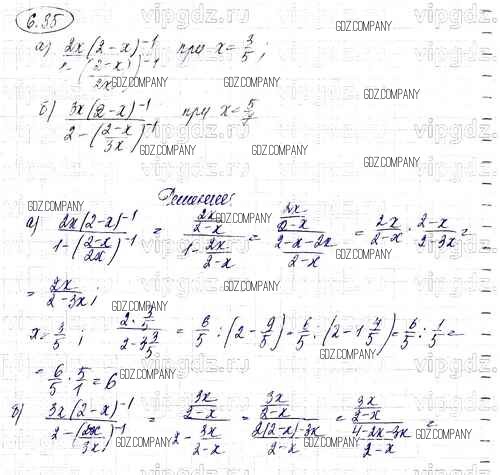 6.35
а) 2x(2-x)^-1 / 1-((2-x)/2x)^-1 при x = 3/5;
б) 3x(2-x)^-1 / 2-((2-x)/3x)^-1 при x =
Решение:
а) 2x(2-x)^-1 / 1-((2-x)/2x)^-1 = (2x/(2-x)) / (1 - 2x/(2-x)) = (2x/(2-x)) / ((2-x-2x)/(2-x)) = 2x/(2-x) · (2-x)/(2-3x) =
= 2x/(2-3x);
x = 3/5; (2·3/5) / (2-3·3/5) = 6/5 : (2 - 9/5) = 6/5 : (2-1 4/5) = 6/5 : 1/5 =
= 6/5 · 5/1 = 6
б) 3x(2-x)^-1 / 2-((2-x)/3x)^-1 = (3x/(2-x)) / (2 - 3x/(2-x)) = (3x/(2-x)) / ((2(2-x)-3x)/(2-x)) = (3x/(2-x)) / ((4-2x-3x)/(2-x)) =